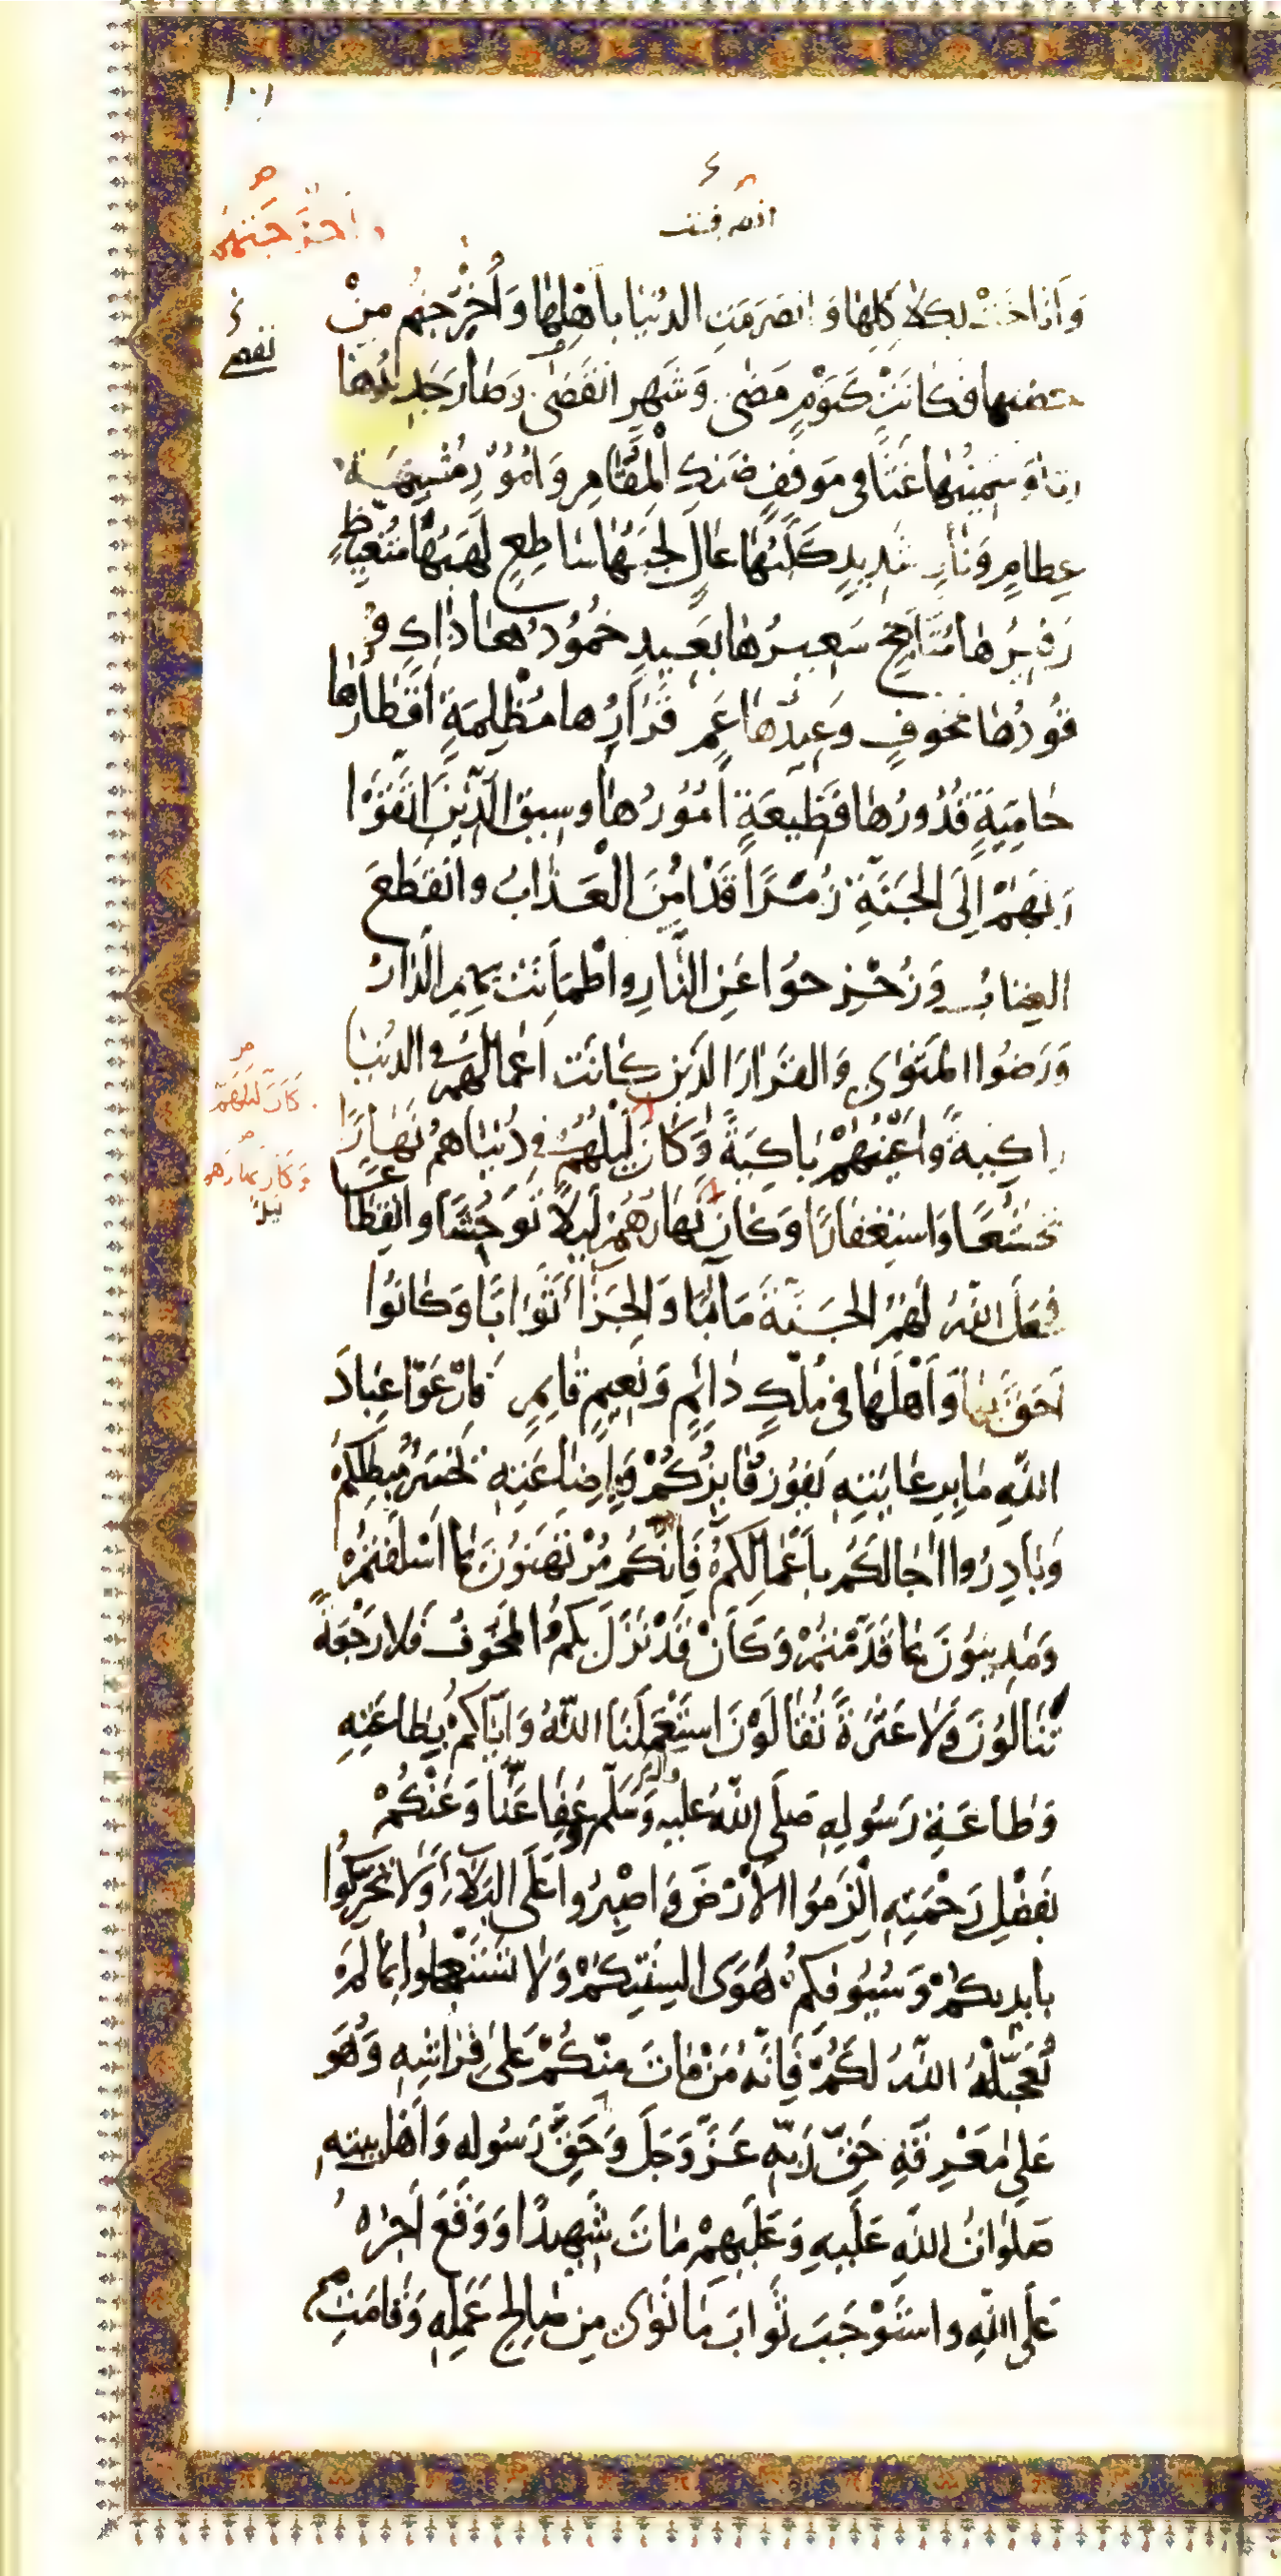 ١٠١
وَأَنَاخَتْ بِكَلَاكِلِهَا وَانْصَرَمَتِ الدُّنْيَا بِأَهْلِهَا وَأَخْرَجَتْهُمْ مِنْ
حضنها فَكَانَتْ كَيَوْمٍ مَضَى وَشَهْرٍ انْقَضَى وَصَارَ جَدِيدُهَا
رثا وَسَمِينُهَا غَثًّا فِي مَوْقِفٍ ضَنْكِ الْمَقَامِ وَأُمُورٍ مُشْتَبِهَةٍ
عِظَامٍ وَنَارٍ شَدِيدٍ كَلَبُهَا عَالٍ لَجَبُهَا سَاطِعٍ لَهَبُهَا مُتَغَيِّظٍ
زَفِيرُهَا مُتَأَجِّجٍ سَعِيرُهَا بَعِيدٍ خُمُودُهَا ذَاكٍ وُ
قُودُهَا مَخُوفٍ وَعِيدُهَا عَمٍ قَرَارُهَا مُظْلِمَةٍ أَقْطَارُهَا
حَامِيَةٍ قُدُورُهَا فَظِيعَةٍ أُمُورُهَا وَسِيقَ الَّذِينَ اتَّقَوْا
رَبَّهُمْ إِلَى الْجَنَّةِ زُمَرًا قَدْ أُمِنَ الْعَذَابُ وَانْقَطَعَ
العِتَابُ وَزُحْزِحُوا عَنِ النَّارِ وَاطْمَأَنَّتْ بِهِمِ الدَّارُ
وَرَضُوا الْمَثْوَى وَالْقَرَارَ الَّذِينَ كَانَتْ أَعْمَالُهُمْ فِي الدُّنْيَا
زاكِيَةً وَأَعْيُنُهُمْ بَاكِيَةً وَكَانَ لَيْلُهُمْ فِي دُنْيَاهُمْ نَهَارًا
تَخَشُّعًا وَاسْتِغْفَارًا وَكَانَ نَهَارُهُمْ لَيْلًا تَوَحُّشًا وَانْقِطَاعًا
فَجَعَلَ اللّٰهُ لَهُمُ الْجَنَّةَ مَآبًا وَالْجَزَاءَ ثَوَابًا وَكَانُوا
أَحَقَّ بِهَا وَأَهْلَهَا فِي مُلْكٍ دَائِمٍ وَنَعِيمٍ قَائِمٍ فَارْعَوْا عِبَادَ
اللّٰهِ مَا بِرِعَايَتِهِ يَفُوزُ فَائِزُكُمْ وَبِإِضَاعَتِهِ يَخْسَرُ مُبْطِلُكُمْ
وَبَادِرُوا آجَالَكُمْ بِأَعْمَالِكُمْ فَإِنَّكُمْ مُرْتَهَنُونَ بِمَا أَسْلَفْتُمْ
وَمَدِينُونَ بِمَا قَدَّمْتُمْ وَكَأَنْ قَدْ نَزَلَ بِكُمُ الْمَخُوفُ فَلَا رَجْعَةً
تُنَالُونَ وَلَا عَثْرَةً تُقَالُونَ اسْتَعْمَلَنَا اللّٰهُ وَإِيَّاكُمْ بِطَاعَتِهِ
وَطَاعَةِ رَسُولِهِ صَلَّى اللّٰهُ عَلَيْهِ وَآلِهِ وَسَلَّمَ وَعَفَا عَنَّا وَعَنْكُمْ
بِفَضْلِ رَحْمَتِهِ الْزَمُوا الْأَرْضَ وَاصْبِرُوا عَلَى الْبَلَاءِ وَلَا تُحَرِّكُوا
بِأَيْدِيكُمْ وَسُيُوفِكُمْ هَوَى أَلْسِنَتِكُمْ وَلَا تَسْتَعْجِلُوا بِمَا لَمْ
يُعَجِّلْهُ اللّٰهُ لَكُمْ فَإِنَّهُ مَنْ مَاتَ مِنْكُمْ عَلَى فِرَاشِهِ وَهُوَ
عَلَى مَعْرِفَةِ حَقِّ رَبِّهِ عَزَّ وَجَلَّ وَحَقِّ رَسُولِهِ وَأَهْلِ بَيْتِهِ
صَلَوَاتُ اللّٰهِ عَلَيْهِ وَعَلَيْهِمْ مَاتَ شَهِيدًا وَوَقَعَ أَجْرُهُ
عَلَى اللّٰهِ وَاسْتَوْجَبَ ثَوَابَ مَا نَوَى مِنْ صَالِحِ عَمَلِهِ وَقَامَتِ
كَانَ لَيْلَهُمْ
وَكَانَ نَهَارَهُم
لَيلاً